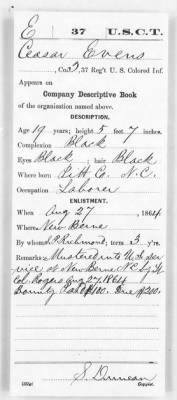 E 37 U.S.C.T.
Ceasar Evens
, Co. 3, 37 Reg't U. S. Colored Inf.
Appears on
Company Descriptive Book
of the organization named above.
DESCRIPTION.
Age 19 years; height 5 feet 7 inches.
Complexion Black
Eyes Black; hair Black
Where born Pitt Co. N.C.
Occupation Laborer
ENLISTMENT.
When Aug 27, 1864
Where New Berne
By whom Richmond; term 3 y'rs.
Remarks: Mustered into U.S. ser
vice at New Berne N.C. by Lt
Col. Rogers Aug 27, 1864
Bounty Paid $100. Due $200.
S. Duncan
Copyist.